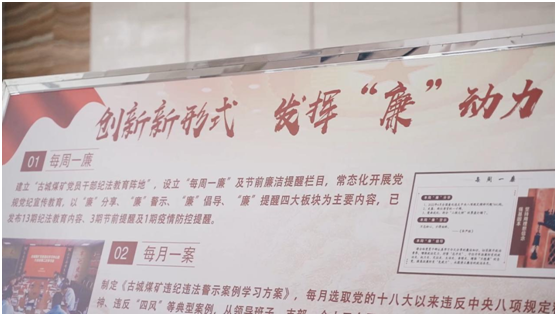 创新新形式 发挥“廉”动力
01 每周一廉
建立“古城煤矿党员干部纪法教育阵地”，设立“每周一廉”及节前廉洁提醒栏目，常态化开展党
规党纪宣传教育，以“廉”分享、“廉”警示、“廉”倡导、“廉”提醒四大板块为主要内容，已
发布13期纪法教育内容、3期节前提醒及1期疫情防控提醒。
每周一廉
02 每月一案
制定《古城煤矿违纪违法警示案例学习方案》，每月选取党的十八大以来违反中央八项规定
神、违反“四风”等典型案例，从领导班子、支部